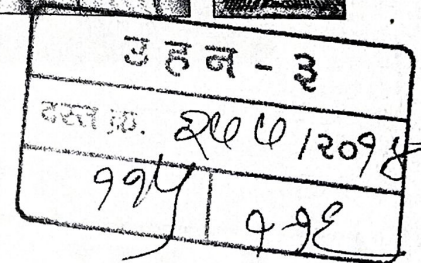 उ ह न - ३
दस्त क्र. २५५ /२०१४
११५ ११६